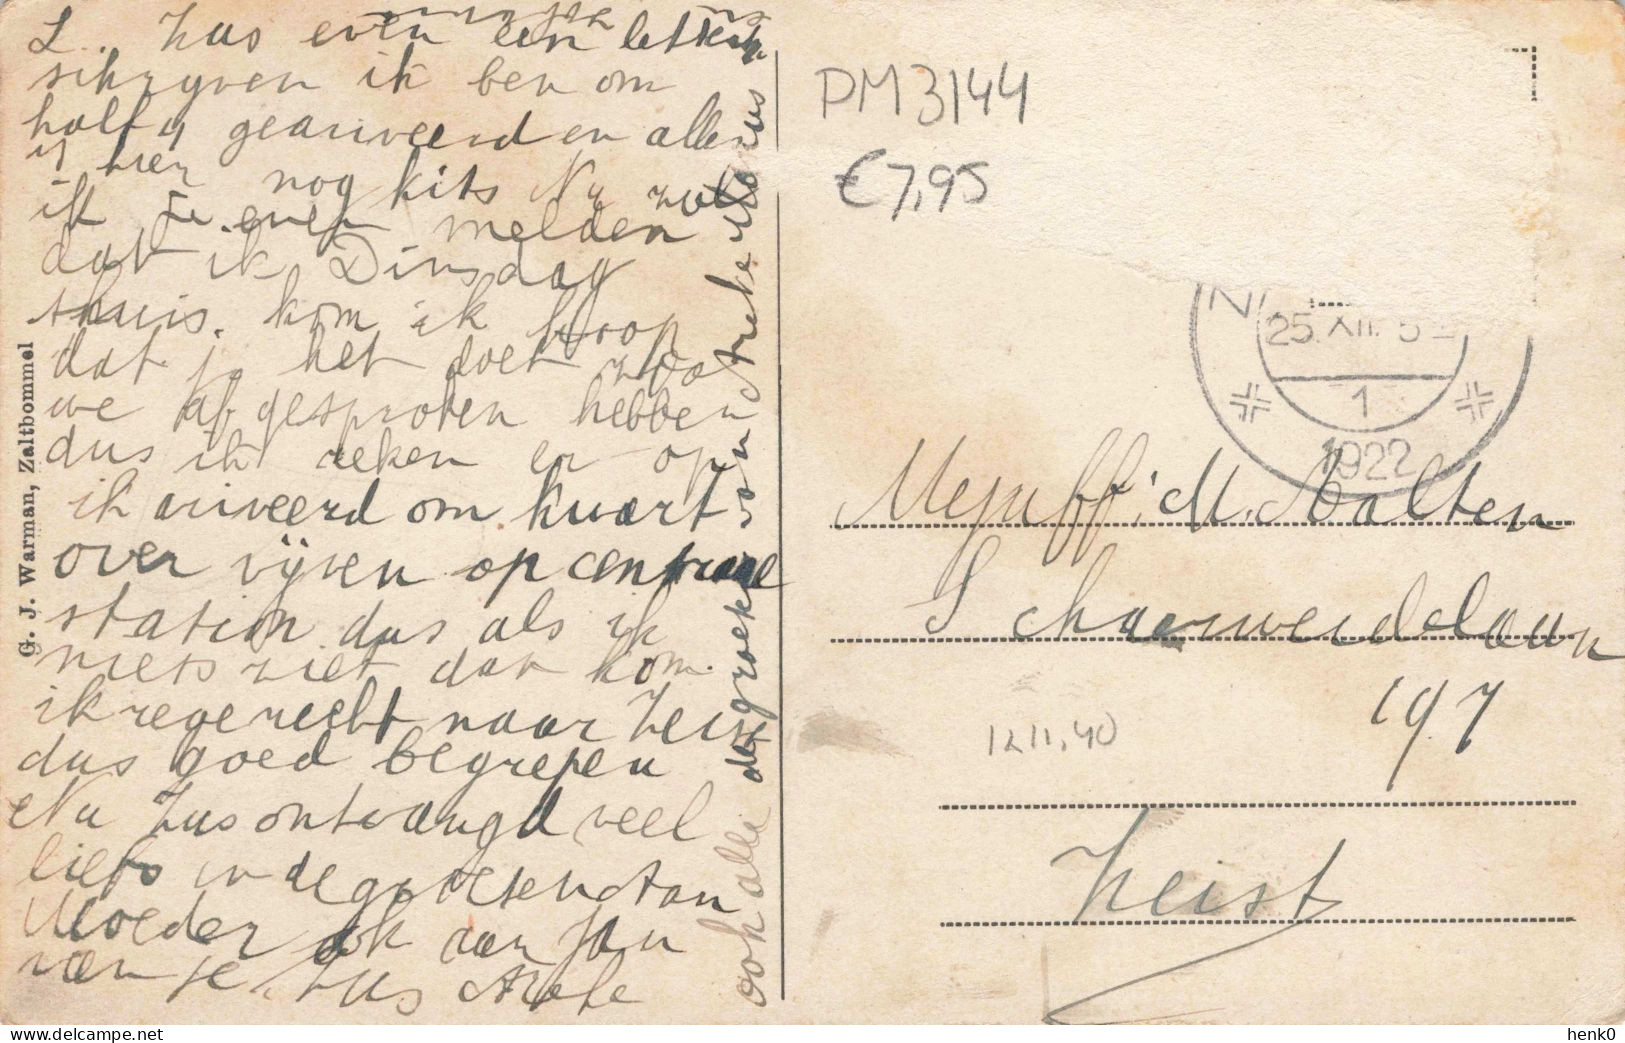 L. Zus even een letter
schryven ik ben om
half 9 geariveerd en alles
is hier nog kits Nu zal
ik Je even melden
dat ik Dinsdag
thuis. kom ik hoop
dat je het doet zoo
we afgesproken hebben
dus ik reken er op
ik ariveerd om kwart
over vijven op centraal
station dus als ik
niets ziet dan kom
ikregerecht naar Zeist
dus goed begrepen
Nu Zus ontvangd veel
liefs en de groetend van
Moeder ook van Jan
van je Zus
ook alle de groeten
G. J. Warman, Zaltbommel
PM3144
€7,95
N
25.XII. 5
1
1922
Mejuff: M. Aalten
Schaerweidelaan
197
1211,40
Zeist
henk0